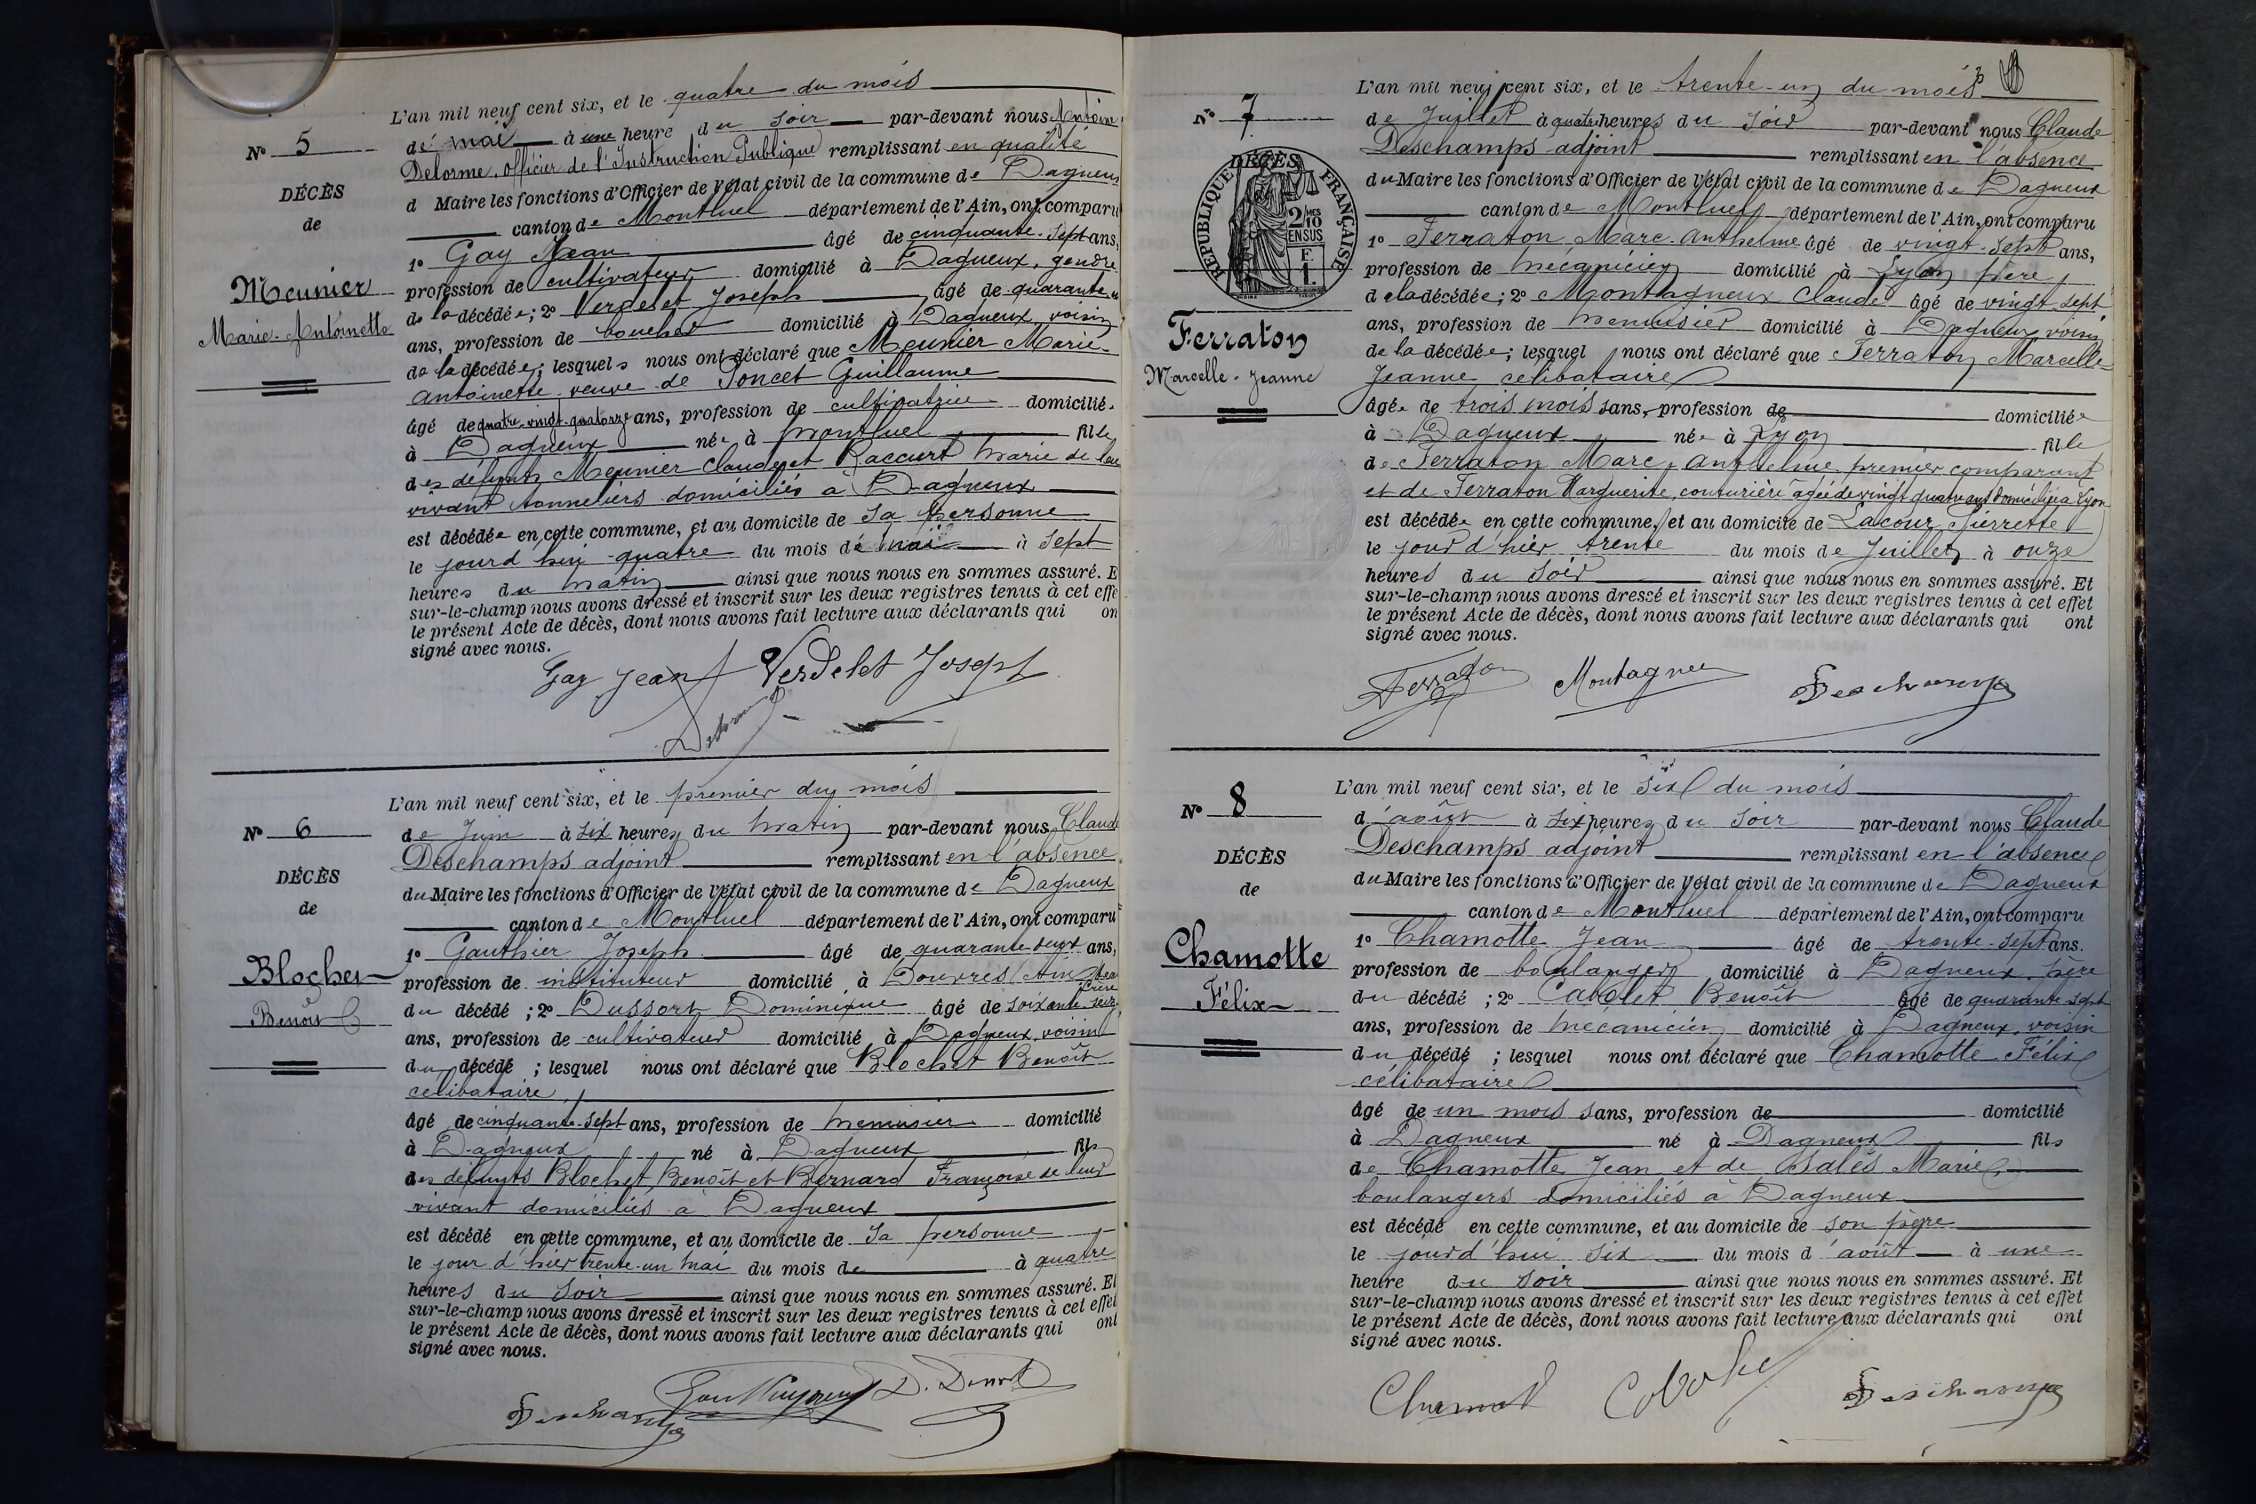 L'an mil neuf cent six, et le quatre du mois
de mai à une heure du soir par-devant nous Antoine
Delorme, officier de l'Instruction Publique remplissant en qualité
d Maire les fonctions d'Officier de l'état civil de la commune de Dagneux
canton de Montluel département de l'Ain, ont comparu
1° Gay Jean âgé de cinquante-sept ans,
profession de cultivateur domicilié à Dagneux, gendre
de la décédée; 2° Verdelet Joseph âgé de quarante
ans, profession de boucher domicilié à Dagneux, voisin
de la décédée; lesquels nous ont déclaré que Meunier Marie-
Antoinette veuve de Poncet Guillaume
âgé de quatre-vingt-quatorze ans, profession de cultivatrice domiciliée
à Dagneux née à Montluel fille
des défunts Meunier Claude et Raccurt Marie de leur
vivant tonneliers domiciliés à Dagneux
est décédée en cette commune, et au domicile de sa personne
le jourd'hui quatre du mois de mai à sept
heures du matin ainsi que nous nous en sommes assuré. E
sur-le-champ nous avons dressé et inscrit sur les deux registres tenus à cet effe
le présent Acte de décès, dont nous avons fait lecture aux déclarants qui on
signé avec nous.
Gay Jean Verdelet Joseph
Delorme
N° 5
DÉCÈS
de
Meunier
Marie-Antoinette
L'an mil neuf cent six, et le premier du mois
de Juin à six heures du matin par-devant nous Claude
Deschamps adjoint remplissant en l'absence
du Maire les fonctions d'Officier de l'état civil de la commune de Dagneux
canton de Montluel département de l'Ain, ont comparu
1° Gauthier Joseph âgé de quarante-deux ans,
profession de instituteur domicilié à Douvres (Ain) beau
frère
du décédé; 2° Dussort Dominique âgé de soixante-seize
ans, profession de cultivateur domicilié à Dagneux, voisin
du décédé; lesquel nous ont déclaré que Blochet Benoît
célibataire
âgé de cinquante-sept ans, profession de menuisier domicilié
à Dagneux né à Dagneux fils
des défunts Blochet Benoît et Bernard Françoise de leur
vivant domiciliés à Dagneux
est décédé en cette commune, et au domicile de sa personne
le jour d'hier trente-un mai du mois de à quatre
heures du soir ainsi que nous nous en sommes assuré. Et
sur-le-champ nous avons dressé et inscrit sur les deux registres tenus à cet effet
le présent Acte de décès, dont nous avons fait lecture aux déclarants qui ont
signé avec nous.
Deschamps D. Dussort
N° 6
DÉCÈS
de
Blochet
Benoît
L'an mil neuf cent six, et le trente-un du mois
de Juillet à quatre heures du soir par-devant nous Claude
Deschamps adjoint remplissant en l'absence
du Maire les fonctions d'Officier de l'état civil de la commune de Dagneux
canton de Montluel département de l'Ain, ont comparu
1° Ferraton Marc-Anthelme âgé de vingt-sept ans,
profession de mécanicien domicilié à Lyon père
de la décédée; 2° Montagneux Claude âgé de vingt-sept
ans, profession de menuisier domicilié à Dagneux voisin
de la décédée; lesquel nous ont déclaré que Ferraton Marcelle-
Jeanne célibataire
âgée de trois mois sans, profession de domiciliée
à Dagneux née à Lyon fille
de Ferraton Marc, Anthelme premier comparant
et de Ferraton Marguerite, couturière âgée de vingt quatre ans domiciliée à Lyon
est décédée en cette commune, et au domicile de Lacour Pierrette
le jour d'hier trente du mois de Juillet à onze
heures du soir ainsi que nous nous en sommes assuré. Et
sur-le-champ nous avons dressé et inscrit sur les deux registres tenus à cet effet
le présent Acte de décès, dont nous avons fait lecture aux déclarants qui ont
signé avec nous.
Ferraton Montagneux Deschamps
N° 7
DÉCÈS
RÉPUBLIQUE FRANÇAISE
2/10 MES
EN SUS
F
1.
Ferraton
Marcelle-Jeanne
L'an mil neuf cent six, et le six du mois
d'août à six heures du soir par-devant nous Claude
Deschamps adjoint remplissant en l'absence
du Maire les fonctions d'Officier de l'état civil de la commune de Dagneux
canton de Montluel département de l'Ain, ont comparu
1° Chamotte Jean âgé de trente-sept ans.
profession de boulanger domicilié à Dagneux père
du décédé; 2° Cabolet Benoît âgé de quarante sept
ans, profession de mécanicien domicilié à Dagneux voisin
du décédé; lesquel nous ont déclaré que Chamotte Félix
célibataire
âgé de un mois sans, profession de domicilié
à Dagneux né à Dagneux fils
de Chamotte Jean et de Balès Marie
boulangers domiciliés à Dagneux
est décédé en cette commune, et au domicile de son père
le jourd'hui six du mois d'août à une
heure du soir ainsi que nous nous en sommes assuré. Et
sur-le-champ nous avons dressé et inscrit sur les deux registres tenus à cet effet
le présent Acte de décès, dont nous avons fait lecture aux déclarants qui ont
signé avec nous.
Chamot Cabolet Deschamps
N° 8
DÉCÈS
de
Chamotte
Félix